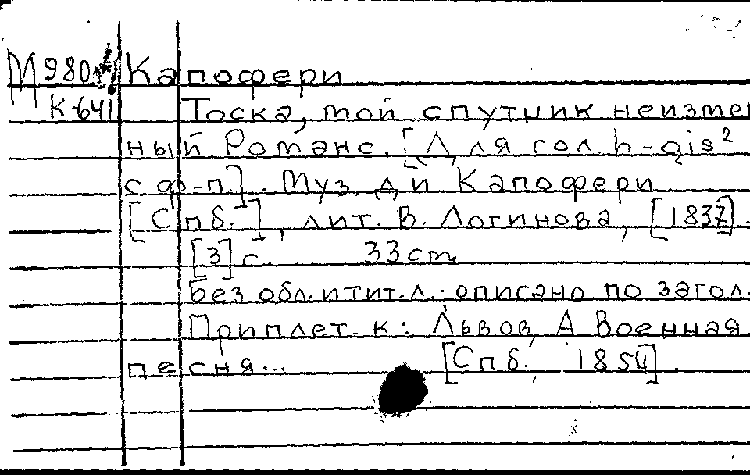 М980 Капофери
К-641 Тоска, мой спутник неизмен
ный Романс. [Для гол. h-gis²
с ф-п.]. Муз. Дй Капофери
[Спб.], лит. В. Логинова, [1837].
[3] с. 33cm
Без обл. и тит. л. - описано по загол.
Приплет. к: Львов, А Военная
песня... [Спб., 1854].